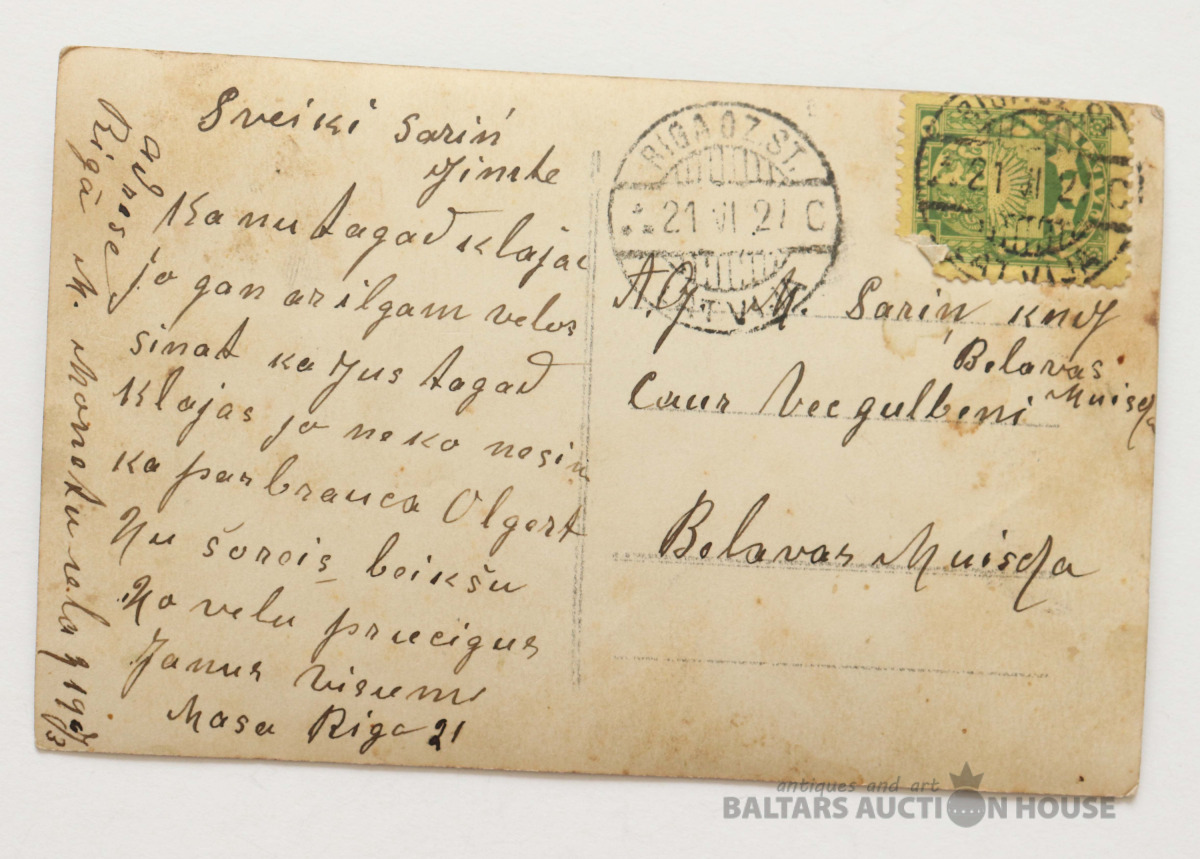 Sveiki Sariņ
Jimte
Ka nu tagad klajai
jo gan ar ilgam velos
sinat ka Jus tagad
Klajas jo neko nesin
ka parbrauca Olgert
Nu šoreis beikšu
No velu priecigus
Janus Visiem
Masa Riga 21
adrese
Rigā M.
RIGA OZ. ST.
21 VI 27 C
LATVIJA
A.G. M. Sariņ kndſ
Belavas
Muisda
Caur Vecgulbeni
Belavas Muisda
antiques and art
BALTARS AUCTION HOUSE